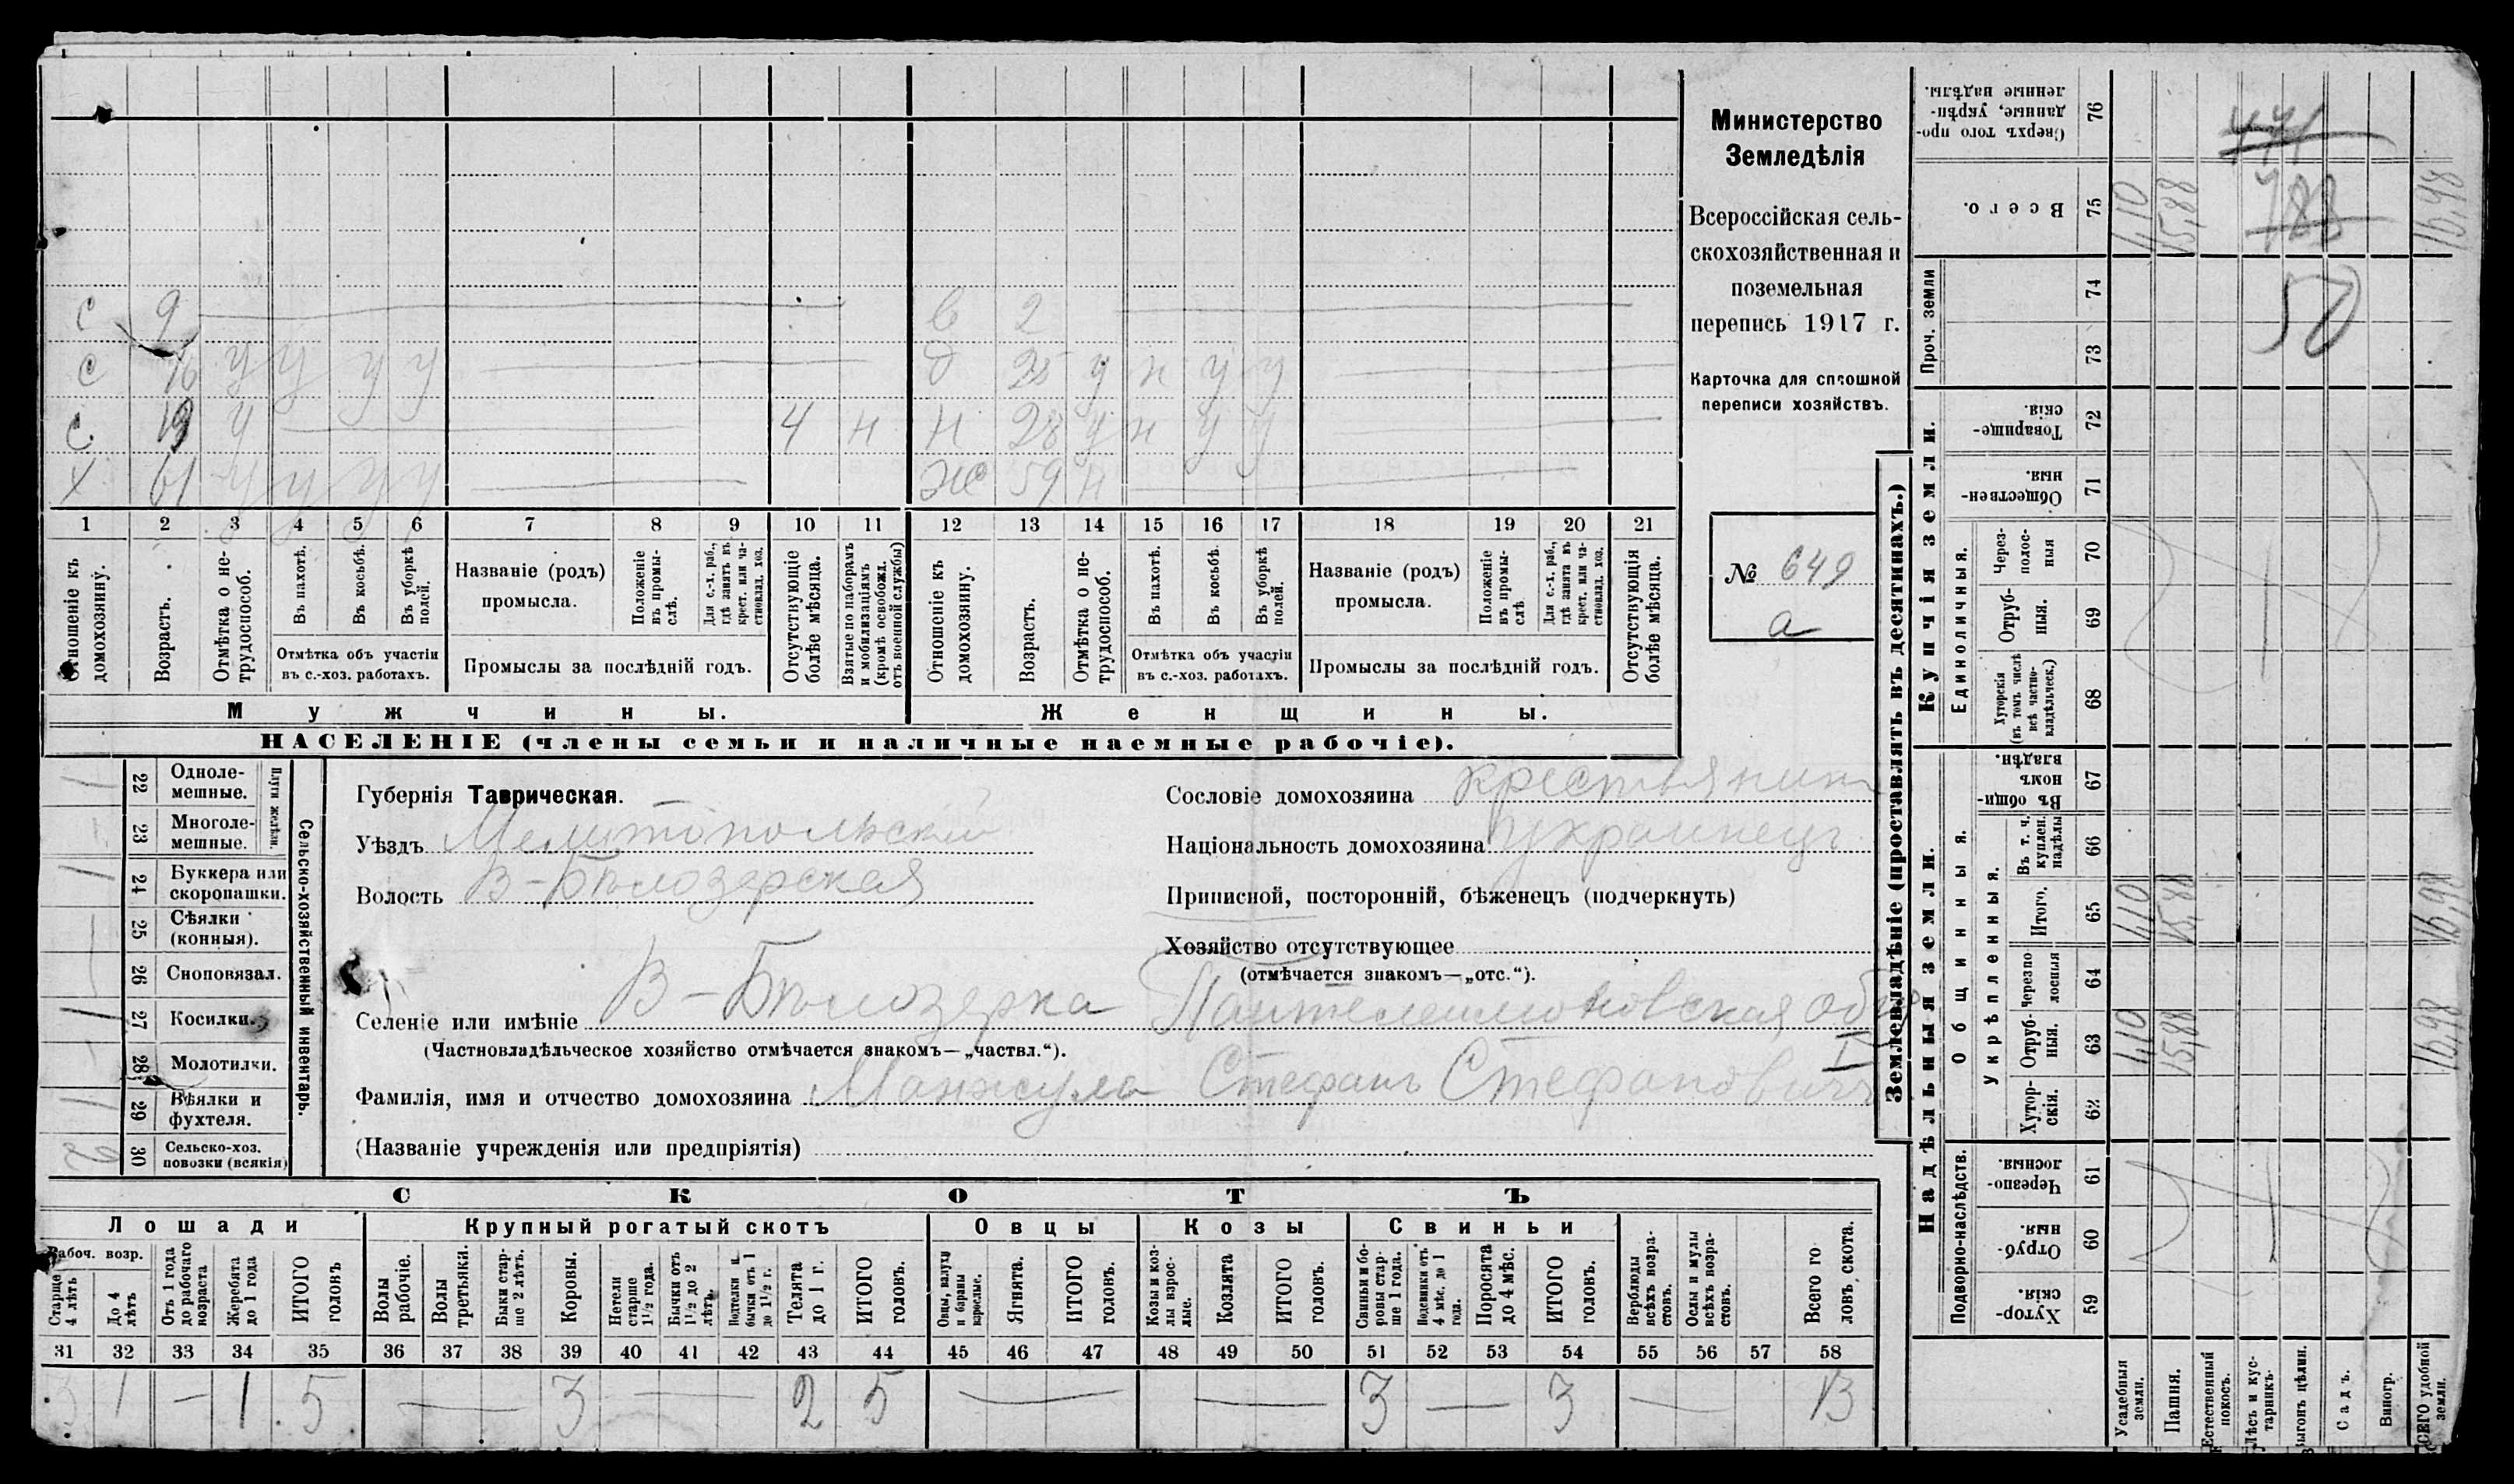 с 9 в 2
с 16 у у у у д 25 у н у у
с. 19 у 4 н н 28 у н у у
х 61 у у у у ж 59 н
1 2 3 4 5 6 7 8 9 10 11 12 13 14 15 16 17 18 19 20 21
Отношеніе къ домохозяину.
Возрастъ.
Отмѣтка о не-трудоспособ.
Въ пахотѣ.
Въ косьбѣ.
Въ уборкѣ полей.
Отмѣтка объ участіи
въ с.-хоз. работахъ.
Названіе (родъ)
промысла.
Положеніе въ промы-слѣ.
Для с.-х. раб., гдѣ занятъ въ крест. или ча-стновлад. хоз.
Промыслы за послѣдній годъ.
Отсутствующіе болѣе мѣсяца.
Взятые по наборамъ и мобилизаціямъ (кромѣ освобожд. отъ военной службы)
Отношеніе къ домохозяину.
Возрастъ.
Отмѣтка о не-трудоспособ.
Въ пахотѣ.
Въ косьбѣ.
Въ уборкѣ полей.
Отмѣтка объ участіи
въ с.-хоз. работахъ.
Названіе (родъ)
промысла.
Положеніе въ промы-слѣ
Для с.-х. раб., гдѣ занята въ крест. или ча-стновлад. хоз.
Промыслы за послѣдній годъ.
Отсутствующія болѣе мѣсяца.
Мужчины.
Женщины.
НАСЕЛЕНІЕ (члены семьи и наличные наемные рабочіе).
Министерство
Земледѣлія
Всероссійская сель-
скохозяйственная и
поземельная
перепись 1917 г.
Карточка для сплошной
переписи хозяйствъ.
№ 649
а
Сельско-хозяйственный инвентарь.
Плуги желѣзн.
1 22 Одноле-мешные.
23 Многоле-мешные.
1 24 Буккера или скоропашки.
25 Сѣялки (конныя).
26 Сноповязал.
1 27 Косилки.
28 Молотилки.
1 29 Вѣялки и фухтеля.
2 30 Сельско-хоз. повозки (всякія)
Губернія Таврическая.
Уѣздъ Мелитопольскій
Волость В-Бѣлозерская
Сословіе домохозяина крестьянин
Національность домохозяина украинецъ
Приписной, посторонній, бѣженецъ (подчеркнуть)
Хозяйство отсутствующее
(отмѣчается знакомъ—„отс.“).
Селеніе или имѣніе В-Бѣлозерка Пантелеимоновская общ
(Частновладѣльческое хозяйство отмѣчается знакомъ—„частвл.“).
Фамилія, имя и отчество домохозяина Манжула Стефанъ Стефановичъ
(Названіе учрежденія или предпріятія)
СКОТЪ
Лошади Крупный рогатый скотъ Овцы Козы Свиньи
Рабоч. возр.
Старше 4 лѣтъ
До 4 лѣтъ
Отъ 1 года до рабочаго возраста
Жеребята до 1 года
ИТОГО головъ
Волы рабочіе.
Волы третьяки.
Быки стар-ше 2 лѣтъ.
Коровы.
Нетели старше 1½ года.
Бычки отъ 1½ до 2 лѣтъ.
Подтелки и бычки отъ 1 до 1½ г.
Телята до 1 г.
ИТОГО головъ.
Овцы, валухи и бараны взрослые.
Ягнята.
ИТОГО головъ.
Козы и коз-лы взрос-лые.
Козлята
ИТОГО головъ.
Свиньи и бо-ровы стар-ше 1 года.
Подсвинки отъ 4 мѣс. до 1 года.
Поросята до 4 мѣс.
ИТОГО головъ.
Верблюды всѣхъ возра-стовъ.
Ослы и мулы всѣхъ возра-стовъ.
Всего го ловъ скота.
31 32 33 34 35 36 37 38 39 40 41 42 43 44 45 46 47 48 49 50 51 52 53 54 55 56 57 58
3 1 — 1 5 — 3 — 2 5 — — 3 — 3 — 13
Землевладѣніе (проставлять въ десятинахъ.)
Купчія земли.
Надѣльныя земли.
Сверхъ того про-данные, укрѣп-ленные надѣлы. 76
Всего. 75 1,10 15,88 16,98
Проч. земли 74 73
Товарище-скія. 72
Обществен-ныя 71
Единоличныя.
Через-полос-ныя 70
Отруб-ныя. 69
Хуторскія (въ томъ числѣ всѣ частно-владѣльческ.) 68
Общинныя.
Въ общи-номъ владѣн. 67
Укрѣпленныя.
Въ т. ч. куплен. надѣлы 66
Итого. 65 1,10 15,88 16,98
Черезпо лосныя 64
Отруб-ныя. 63 1,10 15,88 16,98
Хутор-скія. 62
Подворно-наслѣдств.
Черезпо-лосныя. 61
Отруб-ныя. 60
Хутор-скія. 59
Усадебныя земли.
Пашня.
Естественный покосъ.
Лѣсъ и кус-тарникъ.
Выгонъ цѣлин.
Садъ.
Виногр.
ВСЕГО удобной земли.
441
783
50